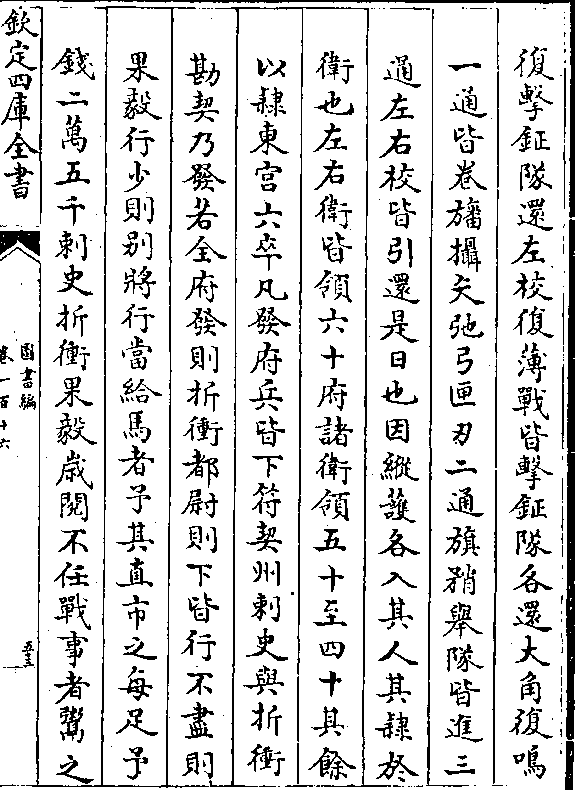 復擊鉦隊還左校復薄戰皆擊鉦隊各還大角復鳴
一通皆卷旛攝矢弛弓匣刃二通旗矟舉隊皆進三
通左右校皆引還是日也因縱護各入其人其隸於
衛也左右衛皆領六十府諸衛領五十至四十其餘
以隸東宮六率凡發府兵皆下符契州剌史與折衝
勘契乃發若全府發則折衝都尉則下皆行不盡則
果毅行少則别將行當給馬者予其直市之每足予
錢二萬五千剌史折衝果毅歳閱不任戰事者鬻之
欽定四庫全書
圖書編
卷一百十六